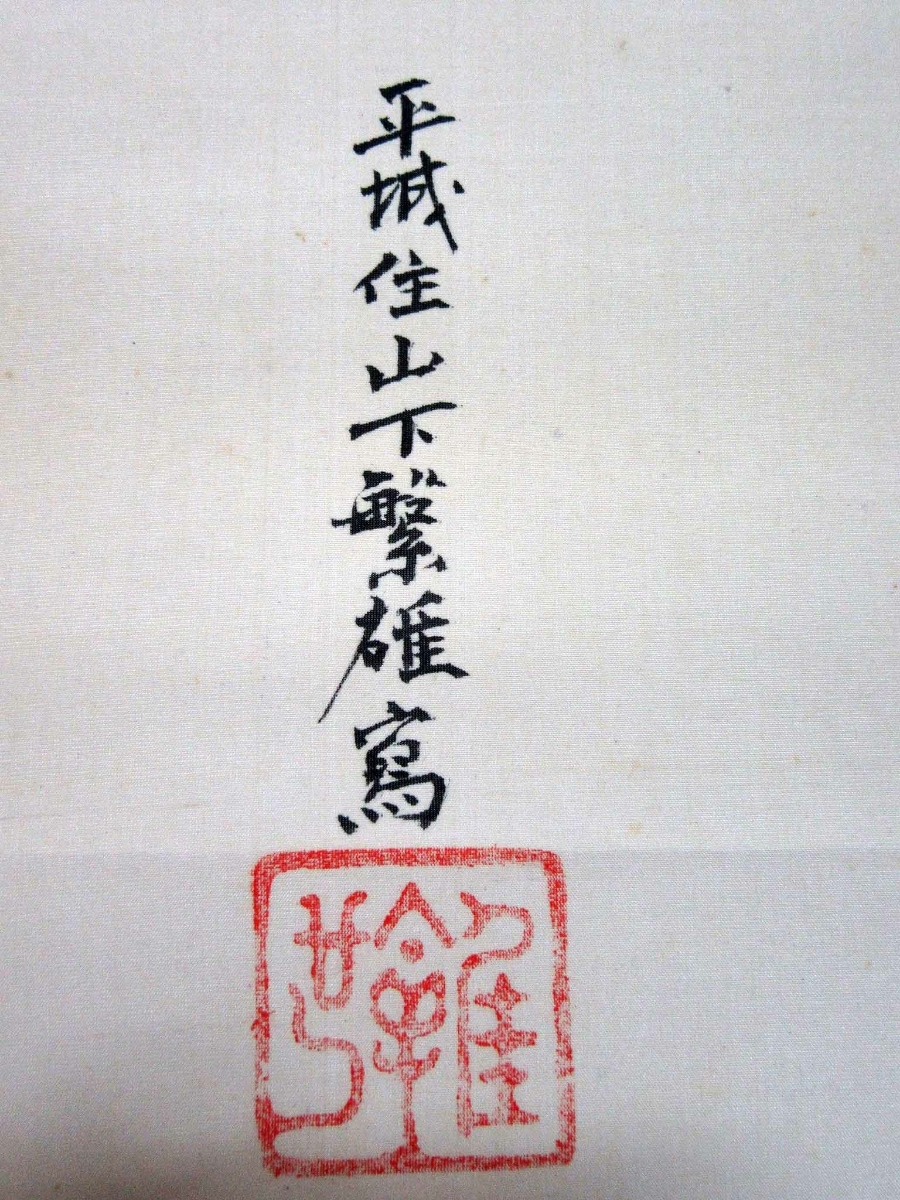 平城住山下繁雄寫